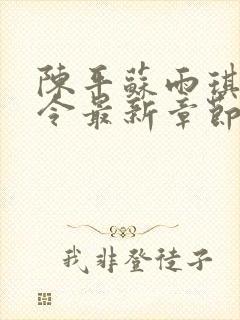 陳平蘇雨琪
令最新章節
我非登徒子